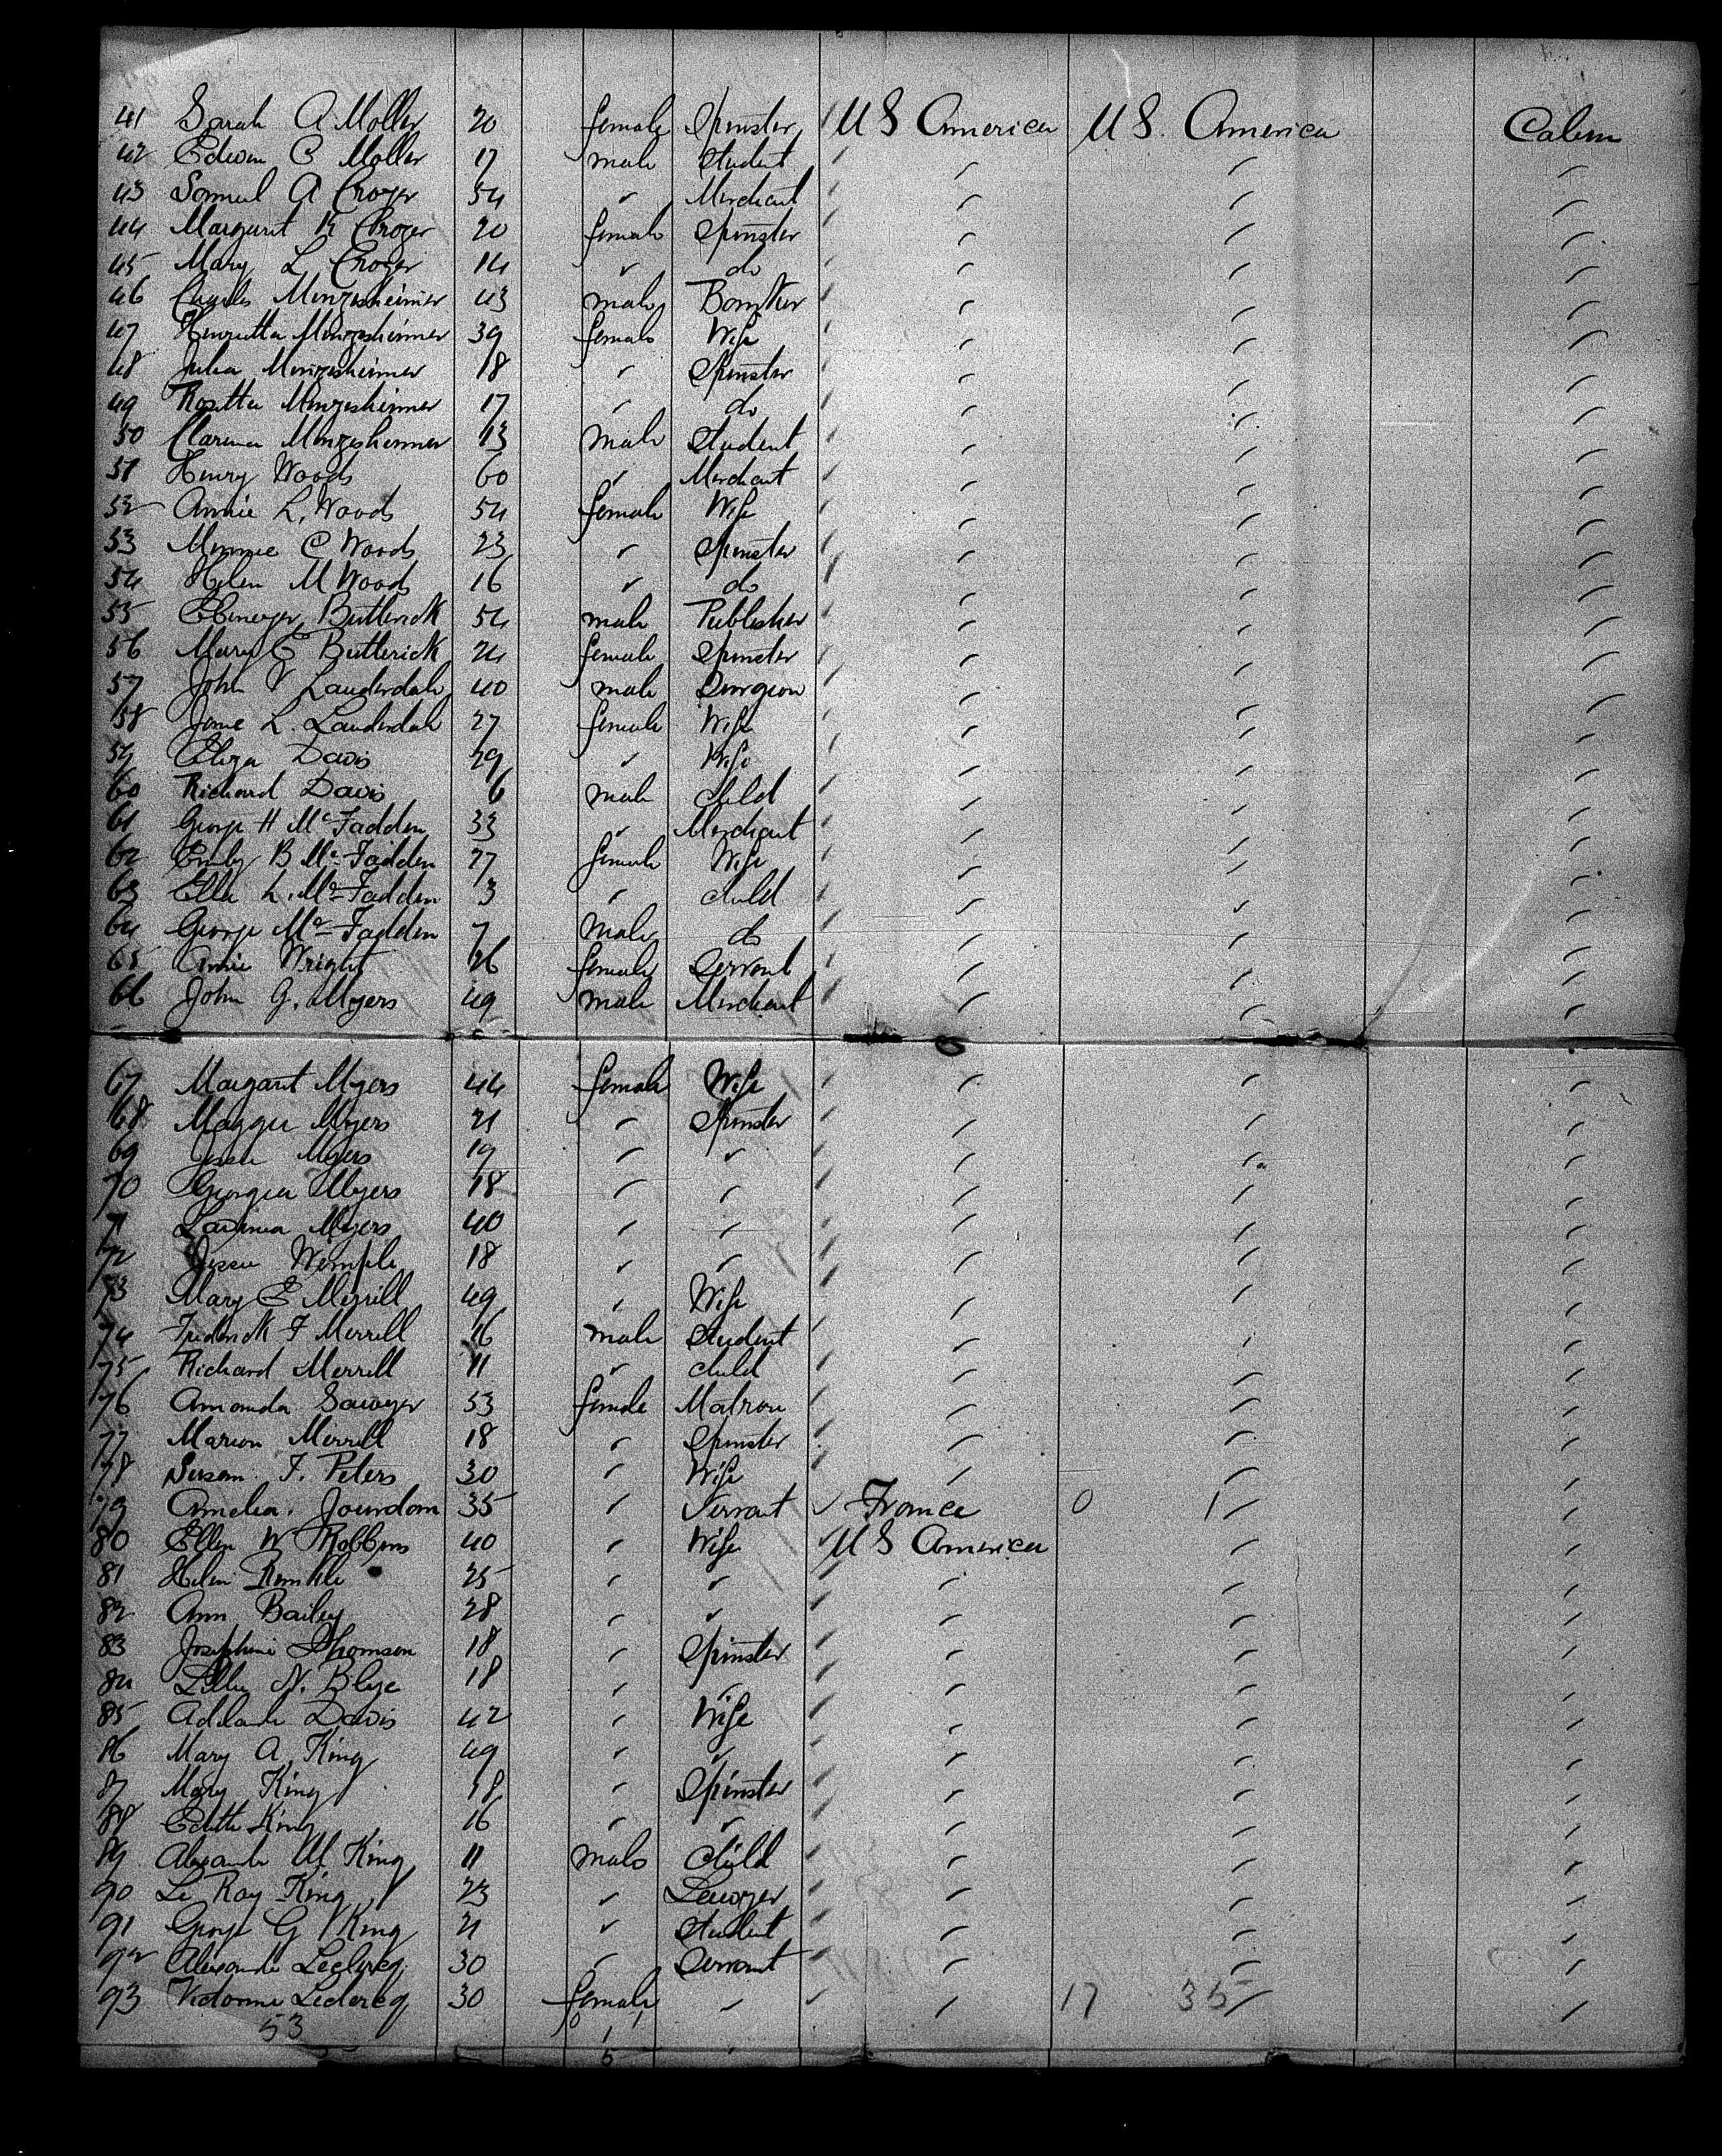 41 Sarah A Moller 20 female Spinster U S America U S. America Cabin
42 Edwin C Moller 17 male Student
43 Samuel A Croger 54 " Merchant
44 Margaret R Croger 20 female Spinster
45 Mary L Croger 14 " do
46 Charles Minzesheimer 43 male Banker
47 Henrietta Minzesheimer 39 female Wife
48 Julia Minzesheimer 18 " Spinster
49 Rosetta Minzesheimer 17 " do
50 Clarence Minzesheimer 13 male Student
51 Henry Woods 60 " Merchant
52 Annie L. Woods 54 female Wife
53 Minnie C Woods 23 " Spinster
54 Helen M Woods 16 " do
55 Ebenezer Butterick 54 male Publisher
56 Mary E Butterick 24 female Spinster
57 John V Lauderdale 40 male Surgeon
58 Jane L. Lauderdale 27 female Wife
59 Eliza Davis 29 " Wife
60 Richard Davis 6 male child
61 George H McFadden 33 " Merchant
62 Emily B McFadden 27 female Wife
63 Ella L. McFadden 3 " child
64 George McFadden 7 male do
65 Annie Wright 26 female Servant
66 John G. Myers 49 male Merchant
67 Margaret Myers 44 female Wife
68 Maggie Myers 21 " Spinster
69 Jessie Myers 19 " "
70 Georgia Myers 18 " "
71 Lavinia Myers 40 " "
72 Jessie Wemple 18 " "
73 Mary E Merrill 49 " Wife
74 Frederick F Merrill 16 male Student
75 Richard Merrill 11 " child
76 Amanda Sawyer 53 female Matron
77 Marion Merrill 18 " Spinster
78 Susan F. Peters 30 " Wife
79 Amelia Jourdan 35 " Servant France 0 1
80 Ellen W Robbins 40 " Wife U S America
81 Helen 25 " "
82 Ann Bailey 28 " "
83 Josephine Thomson 18 " Spinster
84 Lillie N. 18 " "
85 Adelaide Davis 42 " Wife
86 Mary A King 49 " "
87 Mary King 18 " Spinster
88 Edith King 16 " "
89 Alexander M King 11 male Child
90 Le Roy King 23 " Lawyer
91 George G King 21 " Student
92 Alexander Leclercq 30 " Servant
93 Victorine Leclercq 30 female " 17 35
53
5